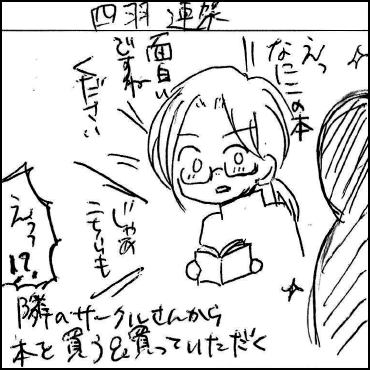 四羽 連架
えっ
なにこの本
面白い
ですね
ください
じゃあ
こちらも
えっ
!?
隣のサークルさんから
本を買う&買っていただく